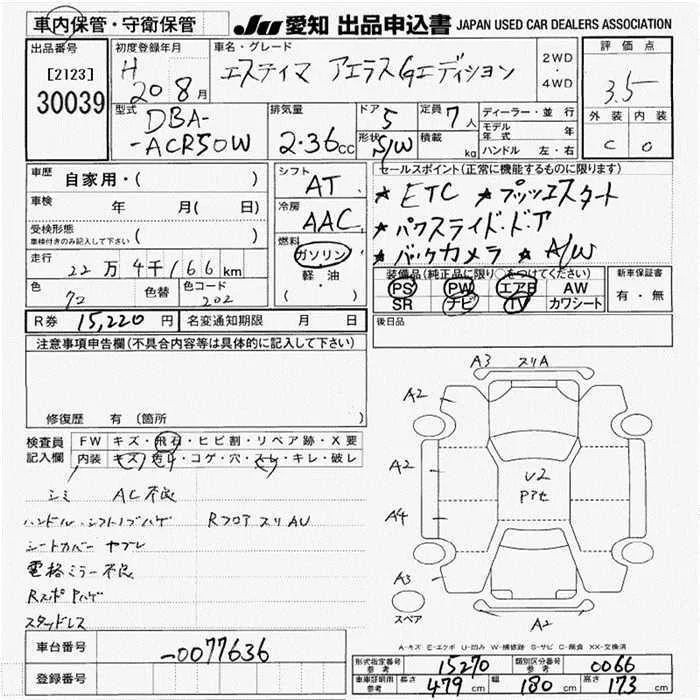 車内保管・守衛保管
JU 愛知 出品申込書 JAPAN USED CAR DEALERS ASSOCIATION
出品番号
[2123]
30039
初度登録年月
H 20 8月
車名・グレード
エスティマ アエラスGエディション
2WD
・
4WD
評価点
3.5
外装 内装
C D
型式
DBA-
-ACR50W
排気量
2.36cc
ドア 5
形状 S/W
定員 7人
積載 kg
ディーラー・並行
モデル年式 年
ハンドル 左・右
車歴 自家用・( )
車検 年 月( 日)
受検形態
(車検付きのみ記入して下さい )
走行 22万4千166km
色 クロ 色替 色コード 202
シフト AT
冷房 AAC
燃料
ガソリン
軽・油
( )
セールスポイント(正常に機能するものに限ります)
★ETC ★プッシュスタート
★パワスライド・ドア
★バックカメラ ★A/W
装備品(純正品に限り○をつけてください)
PS PW エアB AW
SR ナビ TV カワシート
新車保証書
有・無
R券 15,220円 名変通知期限 月 日
後日品
注意事項申告欄(不具合内容等は具体的に記入して下さい)
修復歴 有 〔箇所 〕
検査員
記入欄
FW キズ・飛石・ヒビ割・リペア跡・X要
内装 キズ・汚れ・コゲ・穴・スレ・キレ・破レ
シミ AC不良
ハンドル・シフトノブハゲ RフロアスリAU
シートカバー ヤブレ
電格ミラー不良
Rスポ Pハゲ
スタッドレス
A3 スリA
A2
A2
A4
A3
U2
Pアセ
A2
スペア
A-キズ E-エクボ U-凹み W-補修跡 S-サビ C-腐食 XX-交換済
車台番号 -0077636
登録番号
形式指定番号 参考 15270 類別区分番号 参考 0066
車庫証明用 参考 長さ 479cm 幅 180cm 高さ 173cm